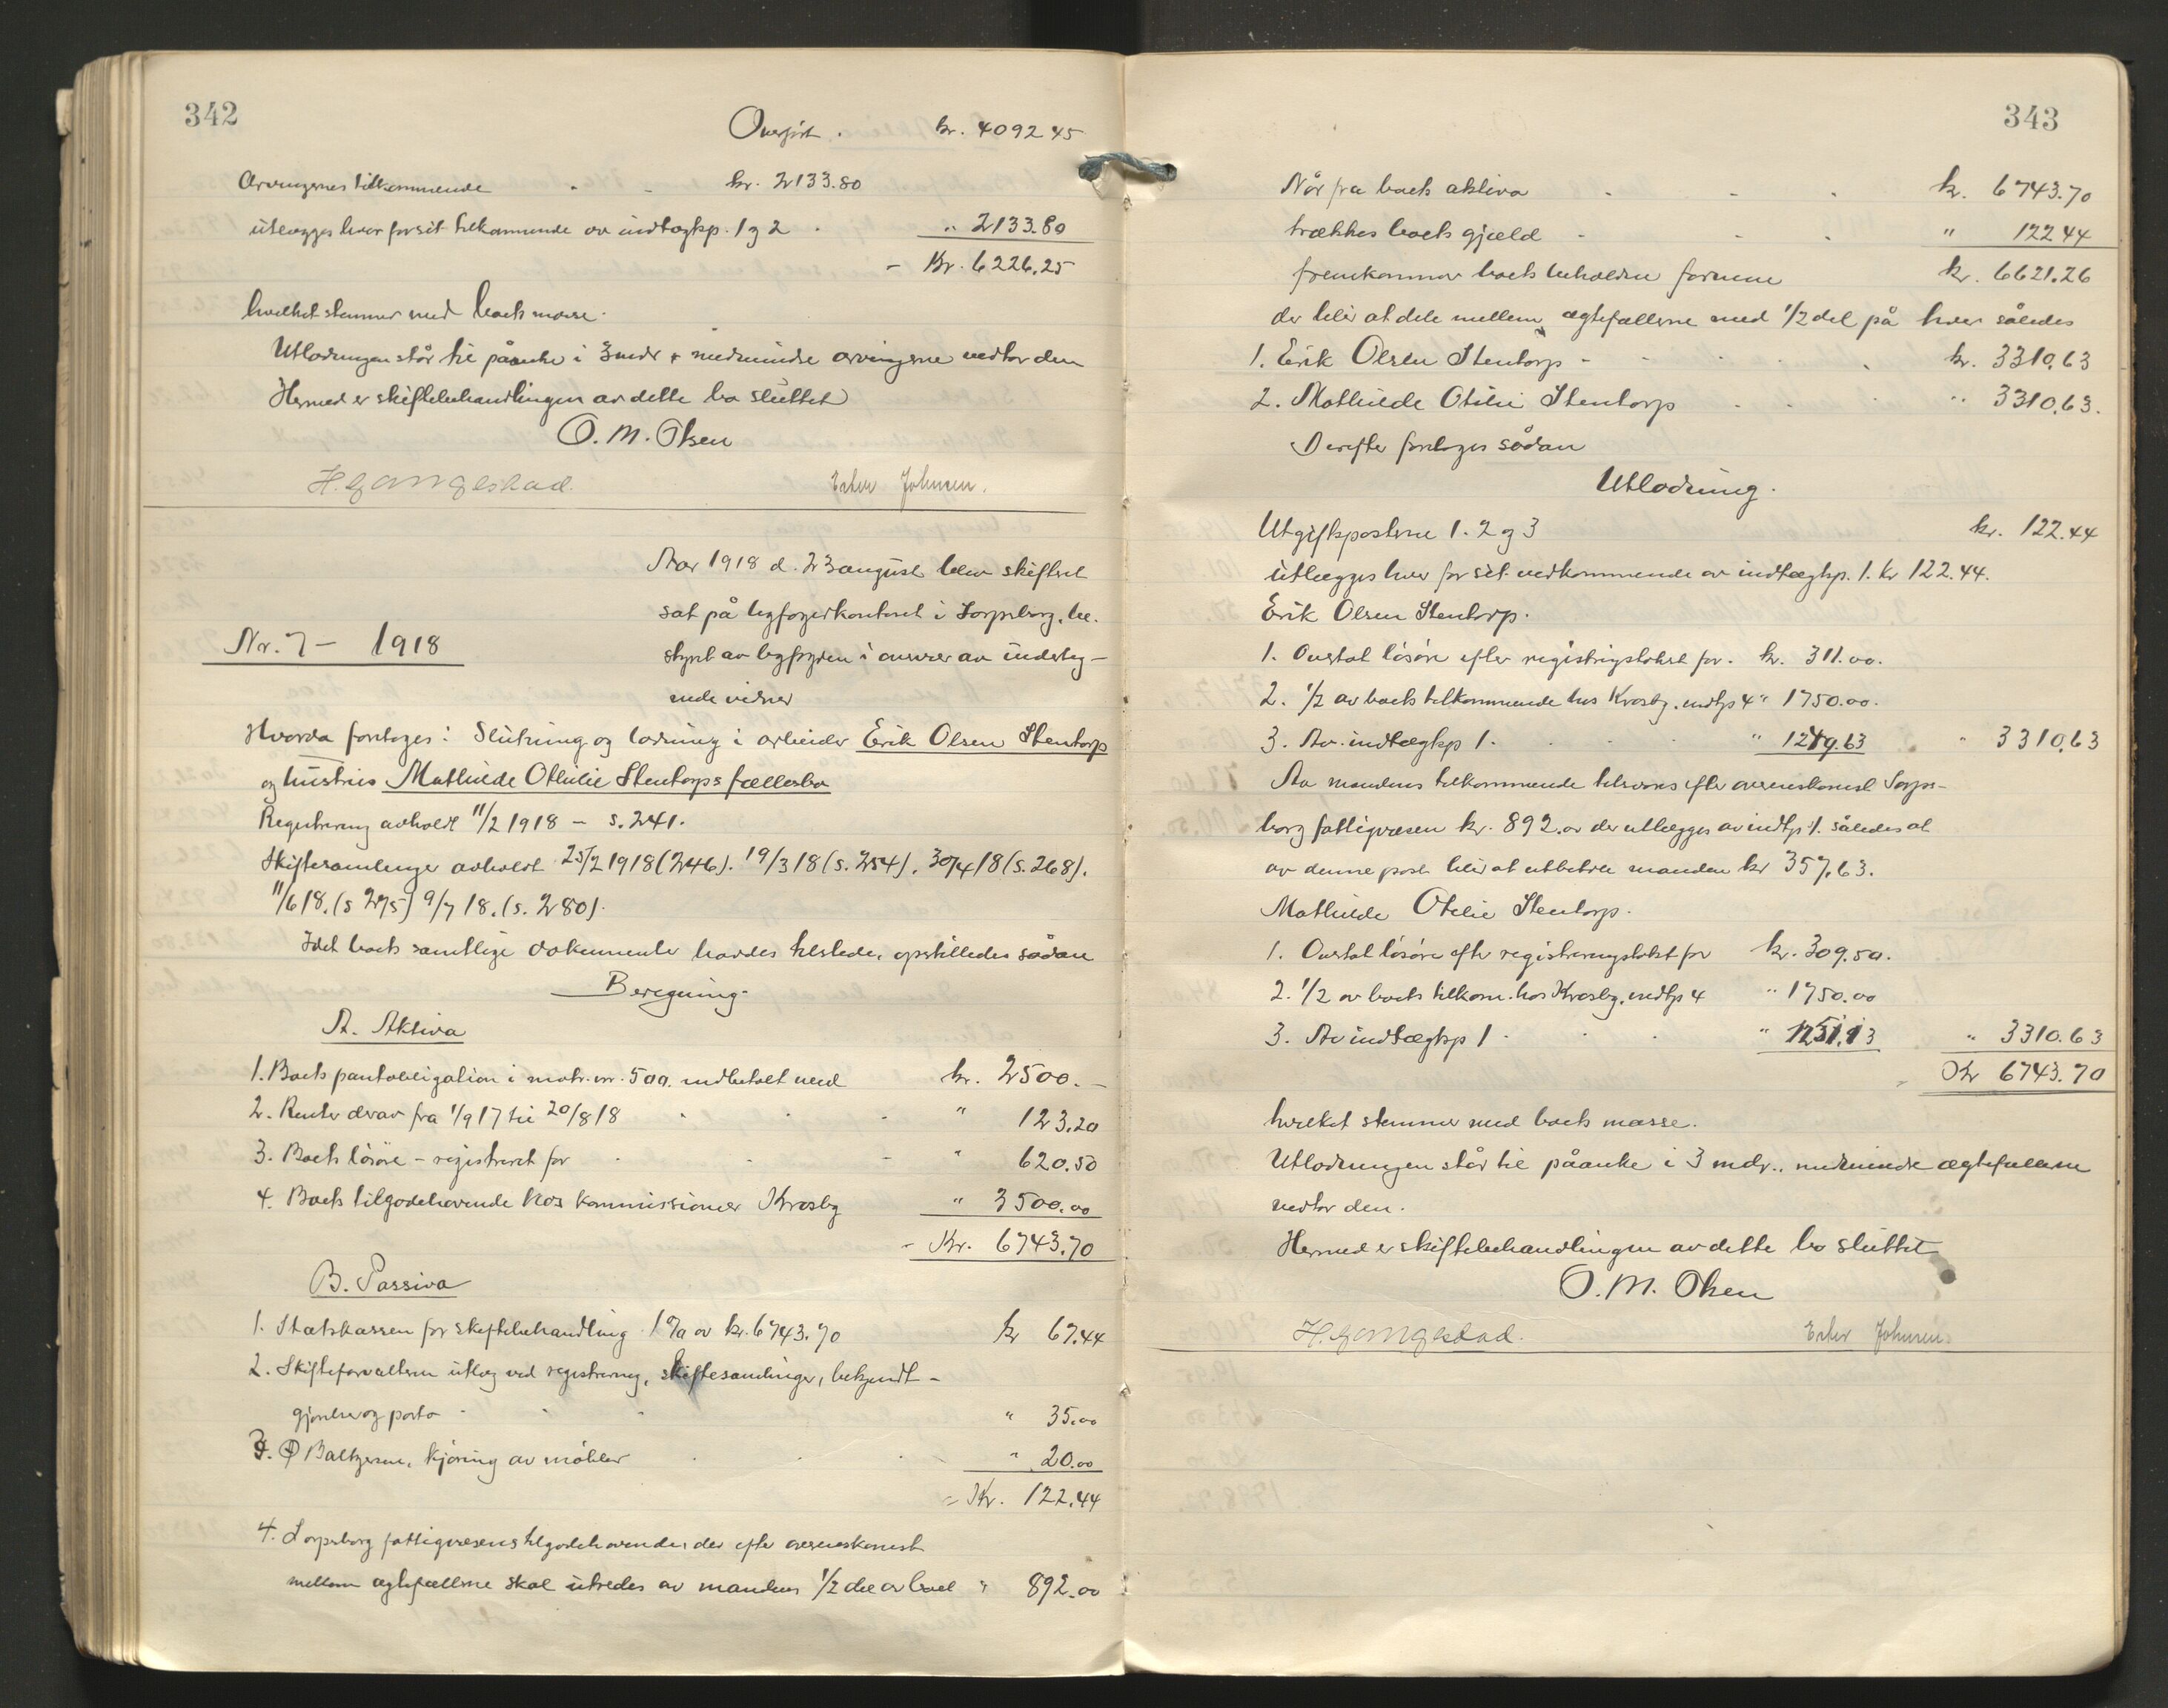 342
Overført . kr. 4092 45
Arvingernes tilkommende - kr. 2133.80
utlægges hver for sit tilkommende av indtægtsp. 1 og 2 . " 2133.80
- Kr. 6226.25
hvilket stemmer med boets masse.
Utlodningen står til påanke i 3 mdr medmindre arvingerne vedtar den
Hermed er skiftebehandlingen av dette bo sluttet
O. M. Olsen
H. Gangestad. Johnsen.
Aar 1918 d. 23 august blev skifteret
sat på byfogedkontoret i Sarpsborg, be-
styret av byfogden i overvær av underteg-
nede vidner
Nr. 7 - 1918
Hvorda foretoges: Slutning og lodning i arbeider Erik Olsen Stentorp
og hustrus Mathilde Othilie Stentorps fællesbo
Registrering avholdt 11/2 1918 - s. 241.
Skiftesamlinger avholdt 25/2 1918 (246). 19/3 18 (s. 254). 30/4 18 (s. 268).
11/6 18. (s 275) 9/7 18. (s. 280).
Idet boets samtlige dokumenter havdes tilstede, opstilledes sådan
Beregning.
A. Aktiva
1. Boets pantobligation i matr. nr. 500. indbetalt med kr. 2500.-
2. Renter derav fra 1/9 17 til 20/8 18 " 123.20
3. Boets løsøre - registreret for " 620.50
4. Boets tilgodehavende hos kommissionær Krosby " 3500.00
- Kr. 6743.70
B. Passiva
1. Statskassen for skiftebehandling 1% av kr. 6743.70 kr 67.44
2. Skifteforvalteren utlæg ved registrering, skiftesamlinger, bekjendt-
gjørelse og porto " 35.00
3. Baltzersen, kjøring av møbler " 20.00
= Kr. 122.44
4. Sarpsborg fattigvæsens tilgodehavende, der efter overenskomst
mellem ægtefællerne skal utredes av mandens 1/2 del av boet " 892.00
343
Når fra boets aktiva kr. 6743.70
trækkes boets gjæld " 122 44
fremkommer boets beholdne formue kr. 6621.26
der blir at dele mellem ægtefællerne med 1/2 del på hver således
1. Erik Olsen Stentorp - kr. 3310.63
2. Mathilde Otilie Stentorp " 3310.63.
Derefter foretoges sådan
Utlodning.
Utgiftsposterne 1. 2 og 3 kr. 122.44
utlægges hver for sit vedkommende av indtægtsp. 1. kr 122.44.
Erik Olsen Stentorp.
1. Overtat løsøre efter registringstakst for. kr. 311.00.
2. 1/2 av boets tilkommende hos Krosby, indtp 4 " 1750.00.
3. Av indtægtsp 1. " 1249.63 " 3310.63
Av mandens tilkommende tilsvares efter overenskomst Sarps-
borg fattigvæsen kr. 892.00 der utlægges av indtp. 1. således at
av denne post blir at utbetale manden kr 357.63.
Mathilde Otilie Stentorp.
1. Overtat løsøre efter registreringstakst for kr. 309.50.
2. 1/2 av boets tilkom. hos Krosby, indtp 4 " 1750.00
3. Av indtægtsp 1 " 1251.13 " 3310.63
Kr 6743.70
hvilket stemmer med boets masse.
Utlodningen står til påanke i 3 mdr., medmindre ægtefællerne
vedtar den.
Hermed er skiftebehandlingen av dette bo sluttet
O. M. Olsen
H. Gangestad. Johnsen.